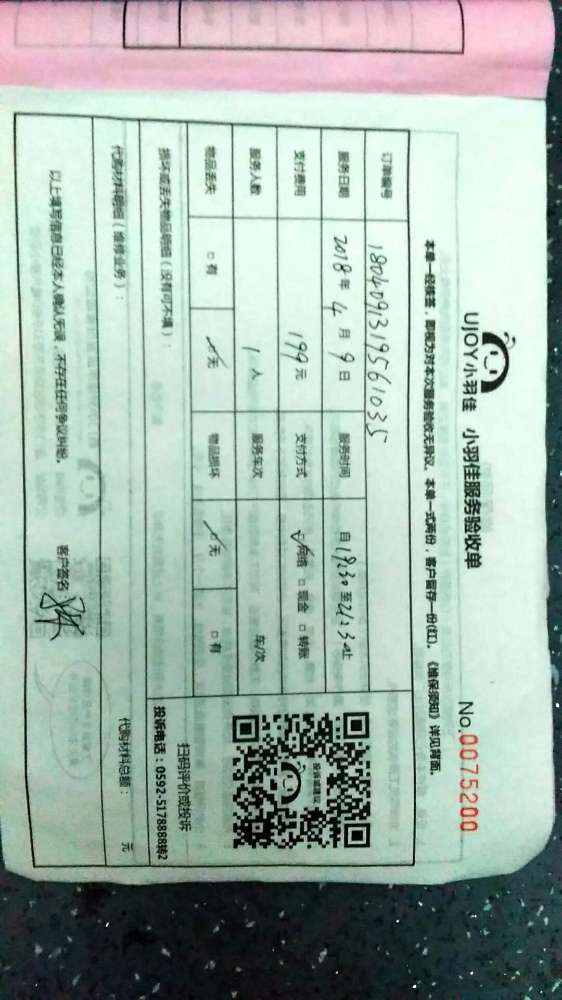 UJOY小羽佳 小羽佳服务验收单
No.0075200
本单一经签署，即视为对本次服务验收无异议，本单一式两份，客户留存一份(红)，《维保须知》详见背面。
订单编号 1804091319561035
服务日期 2018年4月9日 服务时间 自19:30至21:30止
支付费用 199元 支付方式 ☑网络 □现金 □转账
服务人数 1人 服务车次 车/次
物品丢失 □有 ☑无 物品损坏 ☑无 □有
损坏或丢失物品明细（没有可不填）：
投诉或建议
扫码评价或投诉
投诉电话：0592-5178888转2
代购材料明细（维修业务）：
代购材料总额： 元
以上填写信息已经本人确认无误，不存在任何争议纠纷。
客户签名